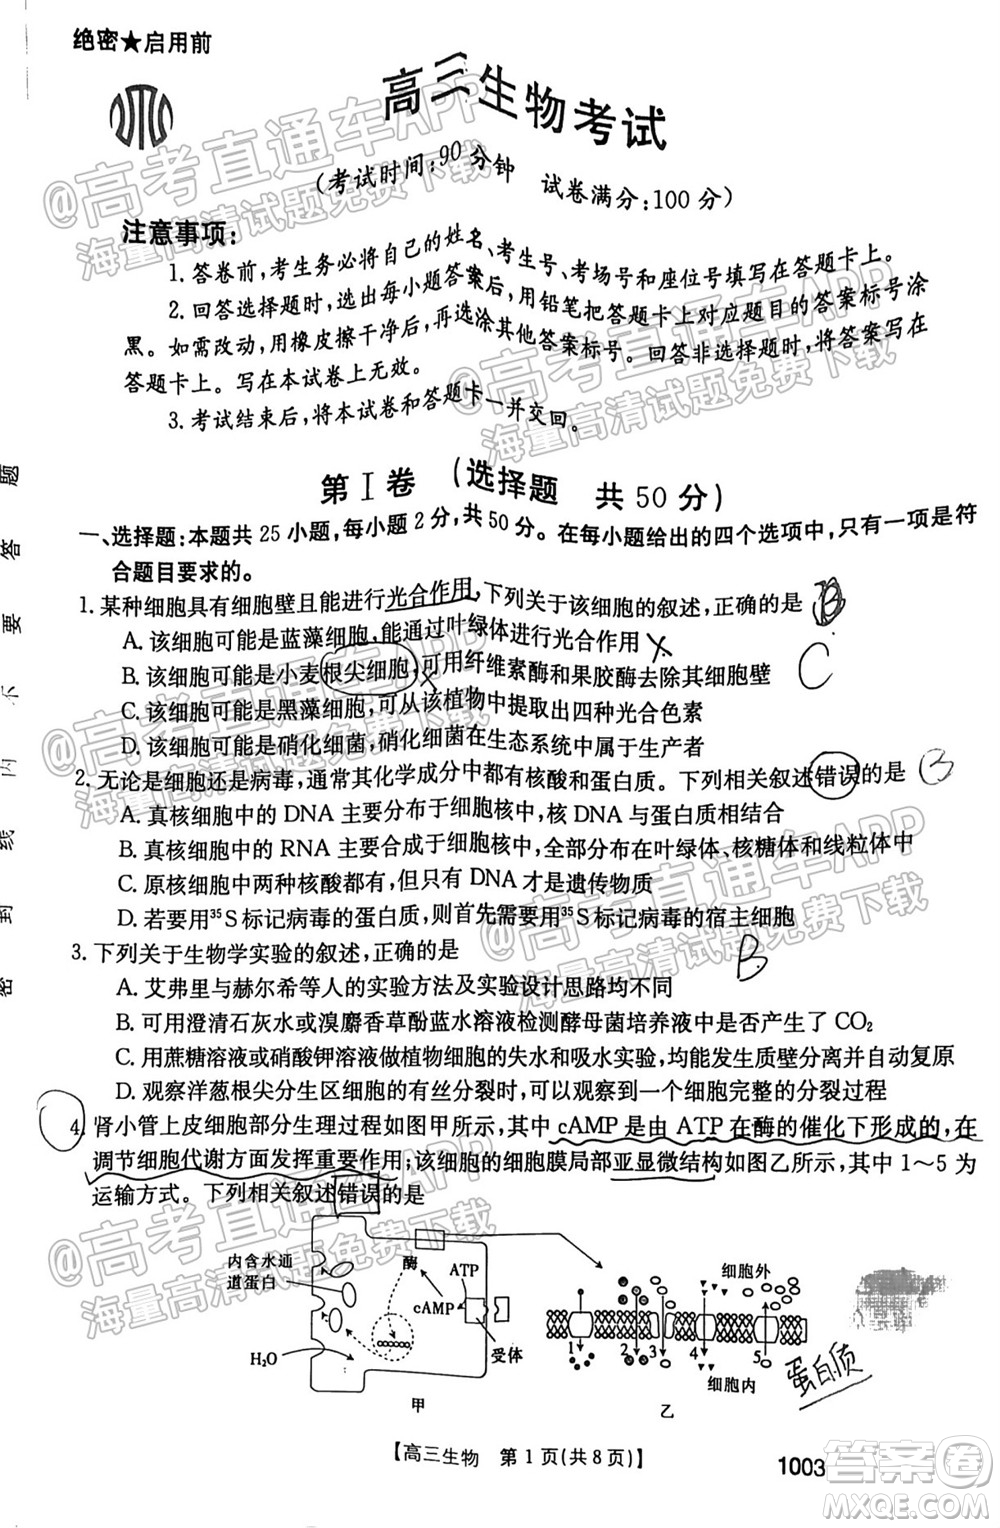 绝密★启用前
高三生物考试
(考试时间:90分钟 试卷满分:100分)
注意事项:
1.答卷前,考生务必将自己的姓名、考生号、考场号和座位号填写在答题卡上。
2.回答选择题时,选出每小题答案后,用铅笔把答题卡上对应题目的答案标号涂
黑。如需改动,用橡皮擦干净后,再选涂其他答案标号。回答非选择题时,将答案写在
答题卡上。写在本试卷上无效。
3.考试结束后,将本试卷和答题卡一并交回。
第Ⅰ卷 (选择题 共50分)
一、选择题:本题共25小题,每小题2分,共50分。在每小题给出的四个选项中,只有一项是符
合题目要求的。
1.某种细胞具有细胞壁且能进行光合作用,下列关于该细胞的叙述,正确的是 B
A.该细胞可能是蓝藻细胞,能通过叶绿体进行光合作用 ×
C
B.该细胞可能是小麦根尖细胞,可用纤维素酶和果胶酶去除其细胞壁 ×
C.该细胞可能是黑藻细胞,可从该植物中提取出四种光合色素
D.该细胞可能是硝化细菌,此类细菌在生态系统中属于生产者
2.无论是细胞还是病毒,通常其化学成分中都有核酸和蛋白质。下列相关叙述错误的是 B
A.真核细胞中的DNA主要分布于细胞核中,核DNA与蛋白质组成染色体
B.真核细胞中的RNA主要合成于细胞核中,全部分布在叶绿体、核糖体和线粒体中
C.原核细胞中两种核酸都有,但只有DNA才是遗传物质
D.若要用³⁵S标记病毒的蛋白质,则需要先用³⁵S标记病毒的宿主细胞
3.下列关于生物学实验的叙述,正确的是 B
A.艾弗里与赫尔希等人的实验方法及实验设计思路均不同
B.可用澄清石灰水或溴麝香草酚蓝水溶液检测酵母菌培养液中是否产生了CO₂
C.用蔗糖溶液和硝酸钾溶液做植物细胞的失水和吸水实验,均能发生质壁分离与自动复原
D.观察洋葱根尖分生区细胞的有丝分裂时,可以看到一个细胞完整的分裂过程
4.肾小管上皮细胞部分生理过程如图甲所示,其中cAMP是由ATP在酶的催化下形成的,在
调节细胞代谢方面发挥重要作用;该细胞的细胞膜局部亚显微结构如图乙所示,其中1~5为
运输方式。下列相关叙述错误的是
内含水通
道蛋白
H₂O
酶
ATP
cAMP
受体
甲
细胞外
1 2 3 4 5
细胞内
乙
蛋白质
【高三生物 第1页(共8页)】
1003
密 封 线 内 不 要 答 题
@高考直通车APP
海量高清试题免费下载
@高考直通车APP
海量高清试题免费下载
@高考直通车APP
海量高清试题免费下载
@高考直通车APP
海量高清试题免费下载
@高考直通车APP
海量高清试题免费下载
答案圈
MXQE.COM